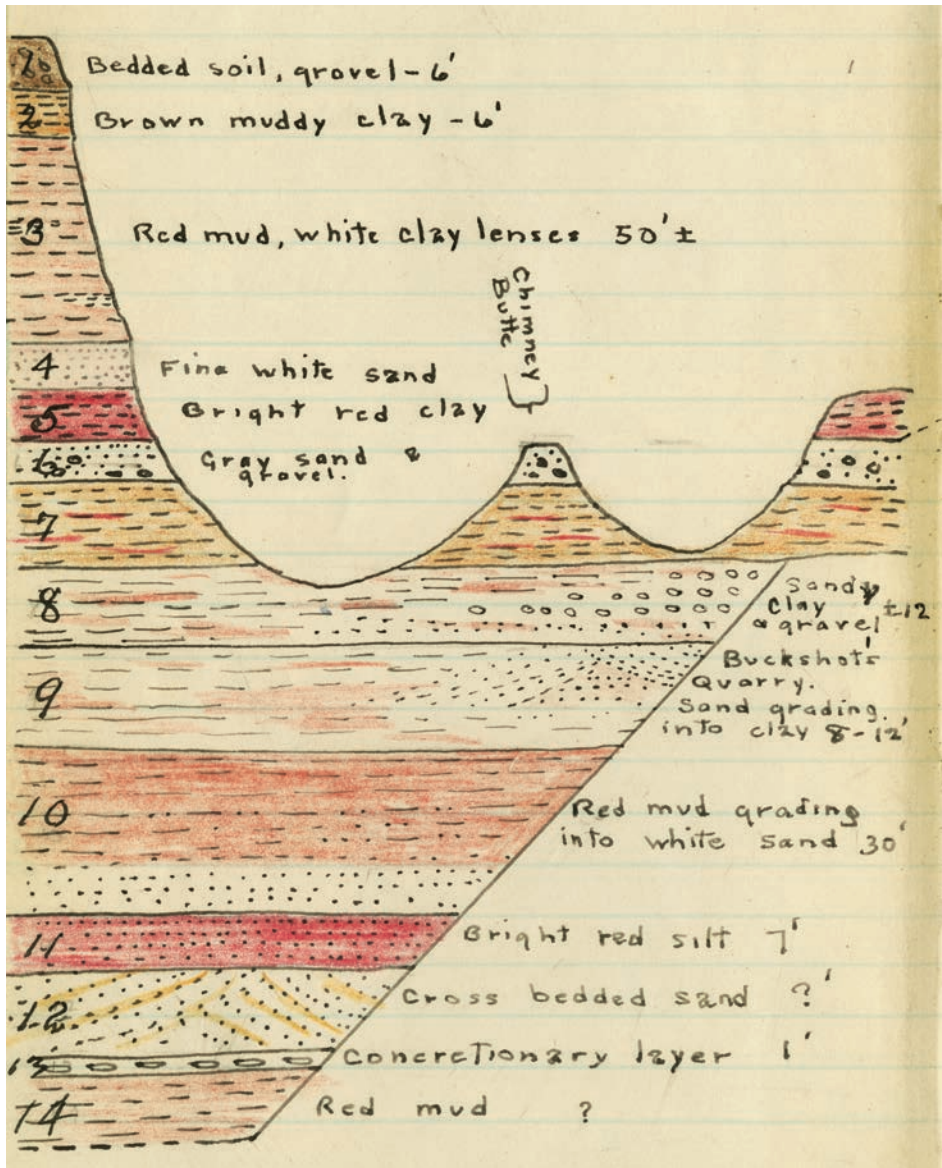 1 Bedded soil, gravel - 6'
2 Brown muddy clay - 6'
3 Red mud, white clay lenses 50' ±
Chimney
Butte
4 Fine white sand
5 Bright red clay
6 Gray sand &
gravel.
7
8 Sandy
Clay ± 12
& gravel
Buckshot's
Quarry.
9 Sand grading
into clay 8-12'
10 Red mud grading
into white sand 30'
11 Bright red silt 7'
12 Cross bedded sand ?'
13 Concretionary layer 1'
14 Red mud ?